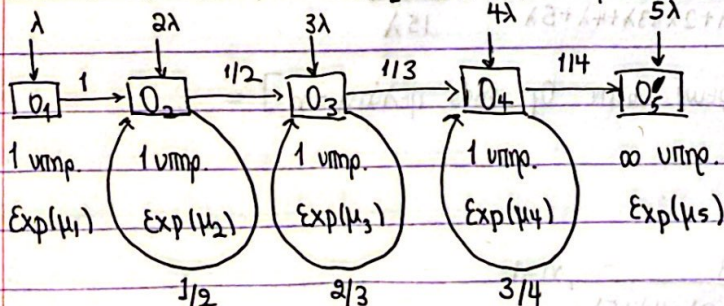 1+2λ+3λ+4λ+5λ 15λ
λ 2λ 3λ 4λ 5λ
O₁ 1 O₂ 1/2 O₃ 1/3 O₄ 1/4 O₅
1 υπηρ. 1 υπηρ. 1 υπηρ. 1 υπηρ. ∞ υπηρ.
Exp(μ₁) Exp(μ₂) Exp(μ₃) Exp(μ₄) Exp(μ₅)
1/2 2/3 3/4